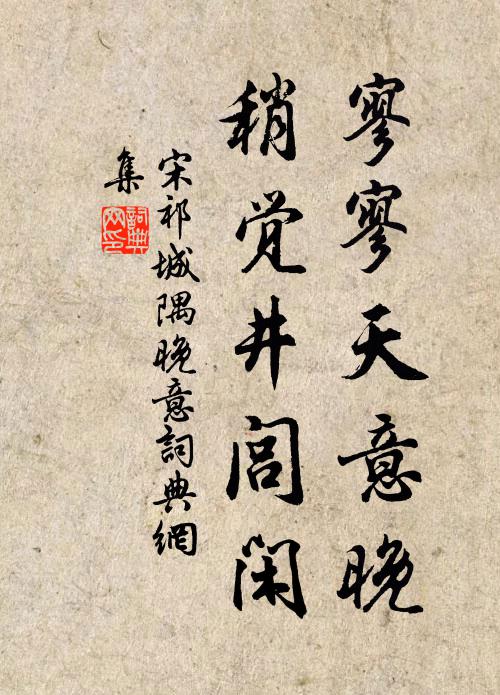 寥寥天意晚
稍觉井闾闲
宋祁城隅晚意詞典網
集
詞典网印